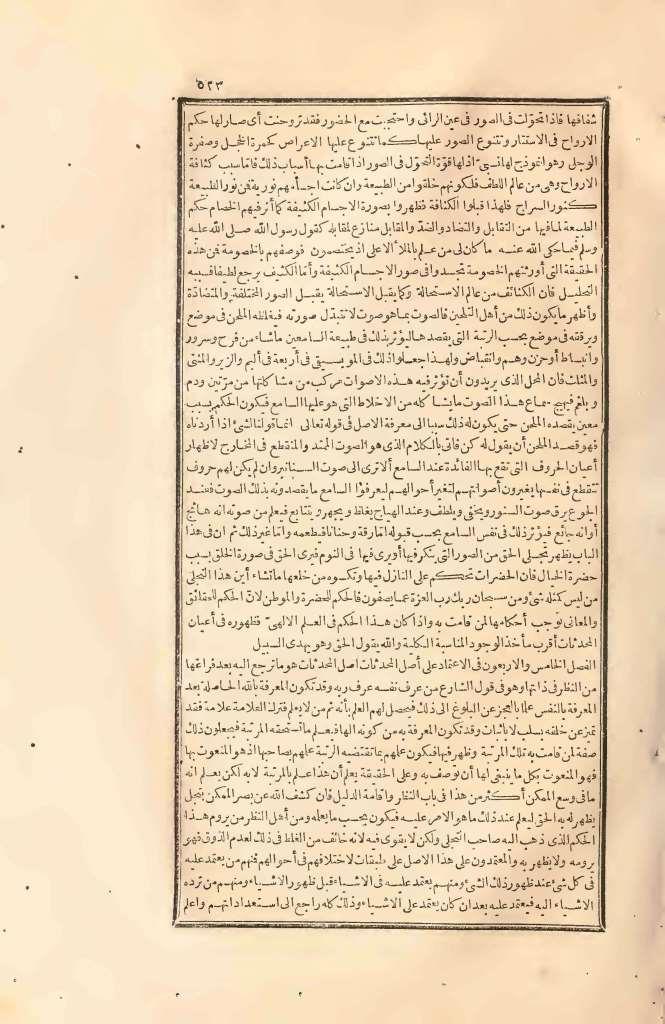 ٥٢٣
شفافها فاذا تحولت في الصور في عين الرائي واحتجبت مع الحضور فقد تروحنت أي صار لها حكم
الارواح في الاستتار وتتنوع الصور عليها كما تتنوع عليها الاعراض كحمرة الخجل وصفرة
الوجل وهو انموذج لها نسبي اذ لها قوة التحول في الصور اذا قامت بها أسباب ذلك فاما سبب كثافة
الارواح وهي من عالم اللطف فلكونهم خلقوا من الطبيعة وان كانت اجسامهم نورية فمن نور الطبيعة
كنور السراج فلهذا قبلوا الكثافة فظهروا بصورة الاجسام الكثيفة كما أثر فيهم الخصام حكم
الطبيعة لما فيها من التقابل والتضاد والضد والمقابل منازع لمقابله كقول رسول الله صلى الله عليه
وسلم فيما حكى الله عنه ما كان لي من علم بالملأ الاعلى اذ يختصمون فوصفهم بالخصومة فمن هذه
الحقيقة التي أورثتهم الخصومة تجسدوا في صور الاجسام الكثيفة وأما الكثيف يرجع لطيفا فسببه
التحليل فان الكثائف من عالم الاستحالة وكما يقبل الاستحالة يقبل الصور المختلفة والمتضادة
وأظهر ما يكون ذلك من أهل التلحين فالصوت بما هو صوت لا تتبدل صورته فيغلظه الملحن في موضع
ويرققه في موضع بحسب الرتبة التي يقصدها ليؤثر بذلك في طبيعة السامعين ما شاء من فرح وسرور
وانبساط أو حزن وهم وانقباض ولهذا جعلوا ذلك في الموسيقى في أربعة في البم والزير والمثنى
والمثلث فان المحل الذي يريدون أن تؤثر فيه هذه الاصوات مركب من مشا كلتها من مرتين ودم
وبلغم فيهيج سماع هذا الصوت ما يشاكله من الاخلاط التي هو عليها السامع فيكون الحكم بسبب
معين يقصده الملحن حتى يكون له ذلك سببا الى معرفة الاصل في قوله تعالى انما قولنا لشئ اذا أردناه
فهو قصد الملحن أن يقول له كن فاتى بالكلام الذي هو الصوت الممتد والمنقطع في المخارج لاظهار
أعيان الحروف التي تقع بها الفائدة عند السامع ألا ترى الى صوت السنانير وان لم يكن لهم حروف
تتقطع في نفسها يغيرون أصواتهم لتغير أحوالهم ليعرفوا السامع ما يقصدونه بذلك الصوت فعند
الجوع يرق صوت السنور ويخفى ويلطف وعند الهياج يغلظ ويجهر ويتتابع فيعلم من صوته انه هائج
أو انه جائع فيؤثر ذلك في نفس السامع بحسب قبوله اما رقة وحنانا فيطعمه واما غير ذلك ثم ان في هذا
الباب يظهر تجلي الحق من الصور التي ينكر فيها أو يرى فيها في النوم فيرى الحق في صورة الخلق بسبب
حضرة الخيال فان الحضرات تتحكم على النازل فيها وتكسوه من خلعها ما تشاء أين هذا التجلي
من ليس كمثله شئ ومن سبحان ربك رب العزة عما يصفون فالحكم للحضرة والموطن لان الحكم للحقائق
والمعاني توجب أحكامها لمن قامت به واذا كان هذا الحكم في العلم الالهي فظهوره في أعيان
المحدثات أقرب مأخذ الوجود المناسبة الكلية والله يقول الحق وهو يهدي السبيل
الفصل الخامس والاربعون في الاعتماد على أصل المحدثات اصل المحدثات هو ما ترجع اليه بعد فراغها
من النظر في ذاتها وهو في قول الشارع من عرف نفسه عرف ربه وقد تكون المعرفة بالله الحاصلة بعد
المعرفة بالنفس علما بالعجز عن البلوغ الى ذلك فيحصل لهم العلم بأنه ثم من لا يعلم فترك العلامة علامة فقد
تميز عن خلقه بسلب لا باثبات وقد تكون المعرفة به من كونه الها فيعلم ما تستحقه المرتبة فيجعلون ذلك
صفة لمن قامت به تلك المرتبة وظهر فيها فيكون علمهم بما تقتضيه الرتبة علمهم بصاحبها اذ هو المنعوت بها
فهو المنعوت بكل ما ينبغي لها أن توصف به وعلى الحقيقة يعلم أن هذا علم بالمرتبة لا به لكن يعلم انه
ما في وسع الممكن أكثر من هذا في باب النظر واقامة الدليل فان كشف الله عن بصر الممكن بتجل
يظهر له به الحق ليعلم عند ذلك ما هو الامر عليه فيكون بحسب ما يعلمه ومن أهل النظر من يروم هذا
الحكم الذي ذهب اليه صاحب التجلي ولكن لا يقوى فيه لانه خائف من الغلط في ذلك لعدم الذوق فهو
يرومه ولا يظهر به والمعتمدون على هذا الاصل على طبقات لاختلافهم في أحوالهم فمنهم من يعتمد عليه
في كل شئ عند ظهور ذلك الشئ ومنهم يعتمد عليه في الاشياء قبل ظهور الاشياء ومنهم من ترده
الاشياء اليه فيعتمد عليه بعد ان كان يعتمد على الاشياء وذلك كله راجع الى استعداداتهم واعلم